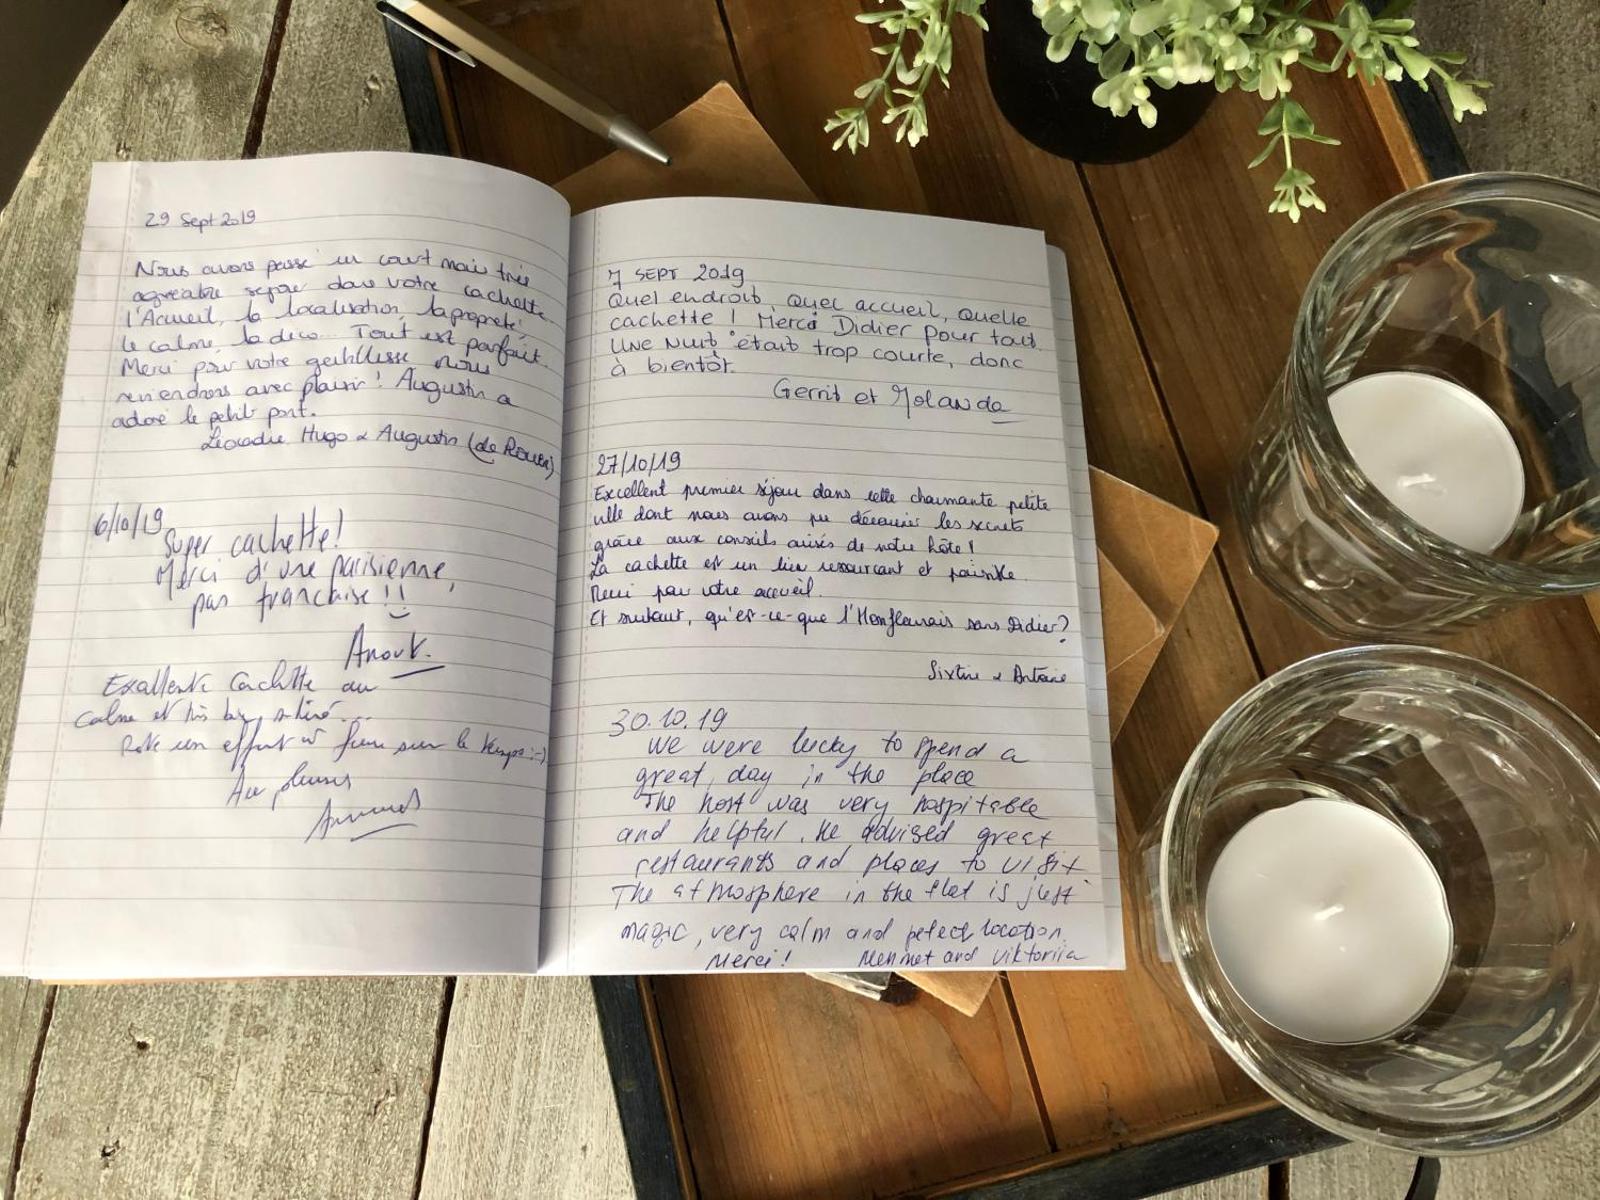 29 Sept 2019
Nous avons passé un court mais très
agréable séjour dans votre cachette.
l'Accueil, la localisation, la propreté,
le calme, la déco... Tout est parfait.
Merci pour votre gentillesse nous
reviendrons avec plaisir ! Augustin a
adoré le petit port.
Léocadie Hugo & Augustin (de Rouen)
6/10/19
Super cachette!
Merci d'une parisienne,
pas francaise !!
Anouk.
Excellente cachette au
calme et très bien située...
Reste un effort à faire sur le temps :-)
Au plaisir
7 SEPT 2019
Quel endroit, quel accueil, quelle
cachette ! Merci Didier pour tout.
Une nuit était trop courte, donc
à bientôt.
Gerrit et Yolanda
27/10/19
Excellent premier séjour dans cette charmante petite
ville dont nous avons pu découvrir les secrets
grâce aux conseils avisés de notre hôte !
La cachette est un lieu ressourçant et paisible.
Merci pour votre accueil.
Et surtout, qu'est-ce-que l'Honfleurais sans Didier?
Sixtine & Antoine
30.10.19
We were lucky to spend a
great day in the place
The host was very hospitable
and helpful. He advised great
restaurants and places to visit
The atmosphere in the flat is just
magic, very calm and pefect location.
Merci! Mehmet and Viktoriia